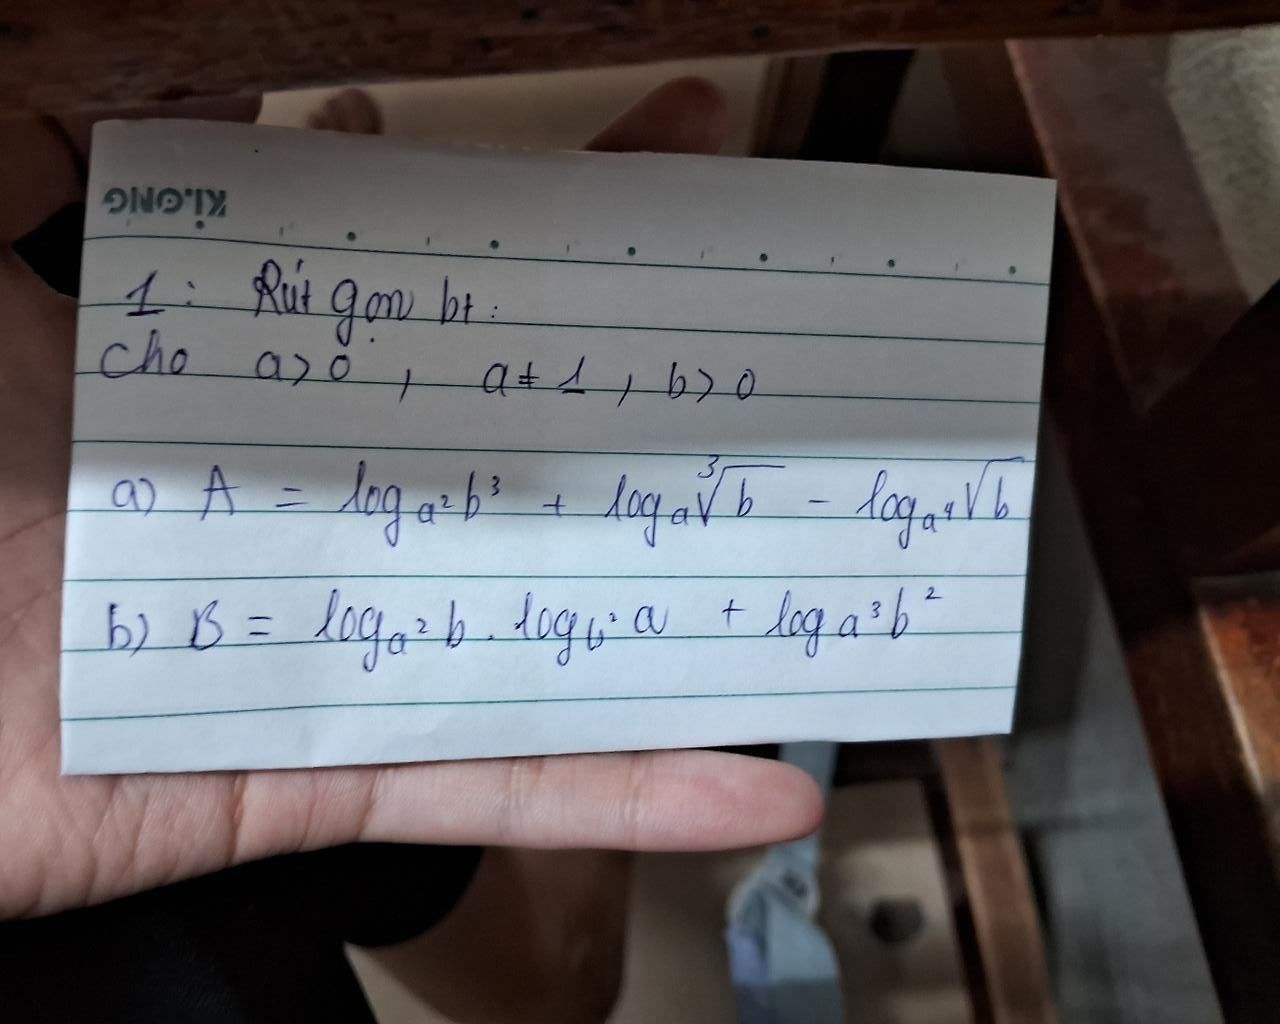 KLONG
1: Rút gọn bt:
Cho a>0, a≠1, b>0
a) A = log_{a²} b³ + log_a ∛b - log_{a⁴} √b
b) B = log_{a²} b . log_{b²} a + log a³ b²